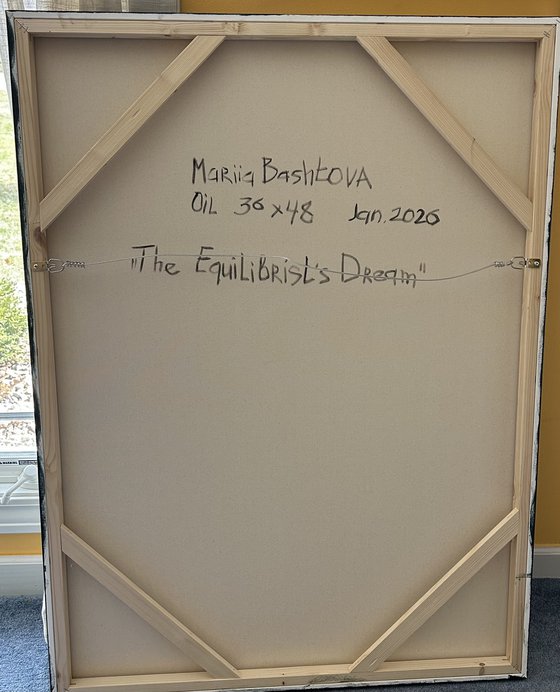 Mariia Bashtova
Oil 36 x 48 Jan. 2026
"The Equilibrist's Dream"